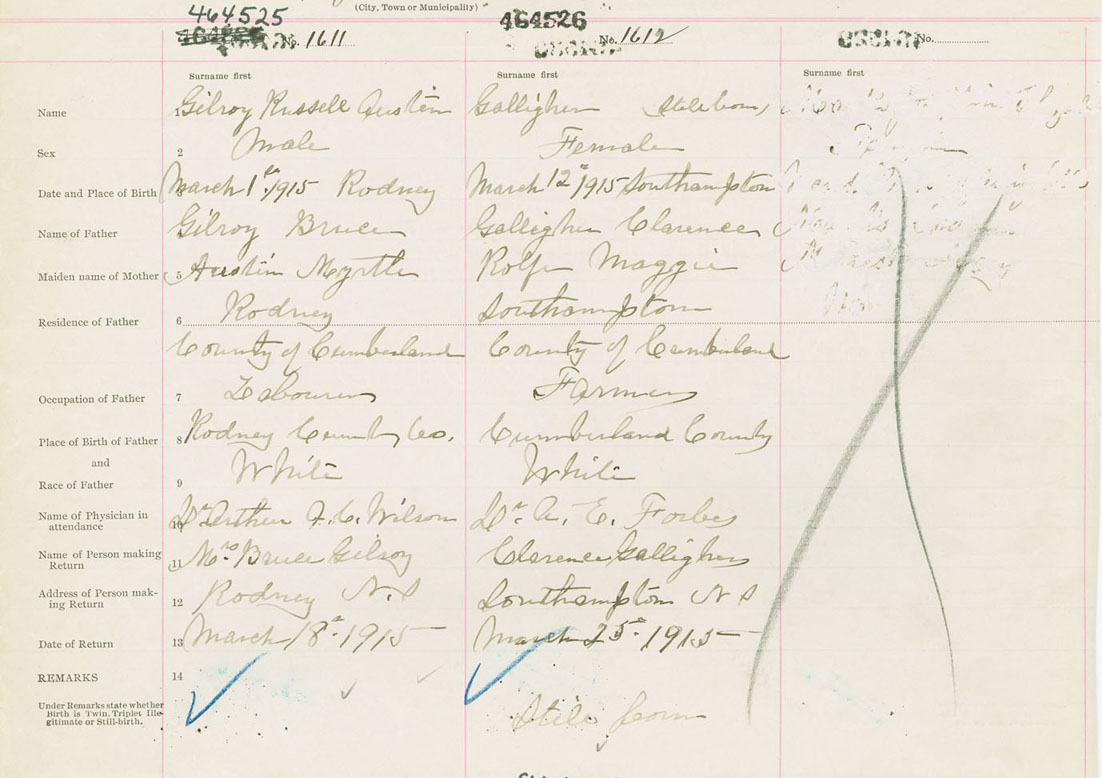 (City, Town or Municipality)
464525 464526
No. 1611 No. 1612 No.
Surname first Surname first Surname first
Name 1 Gilroy Russell Austin Galligher Stileborn
Sex 2 Male Female
Date and Place of Birth 3 March 1st 1915 Rodney March 12th 1915 Southampton
Name of Father Gilroy Bruce Galligher Clarence
Maiden name of Mother 5 Austin Myrtle Rolfe Maggie
Residence of Father 6 Rodney Southampton
County of Cumberland County of Cumberland
Occupation of Father 7 Labourer Farmer
Place of Birth of Father 8 Rodney Cumb. Co. Cumberland County
and
Race of Father 9 White White
Name of Physician in attendance 10 Dr Arthur F. C. Wilson Dr. A. E. Forbes
Name of Person making Return 11 Mrs Bruce Gilroy Clarence Galligher
Address of Person making Return 12 Rodney N.S Southampton N S
Date of Return 13 March 18th 1915 March 25th 1915
REMARKS 14
Under Remarks state whether
Birth is Twin, Triplet Ille-
gitimate or Still-birth. Stile born